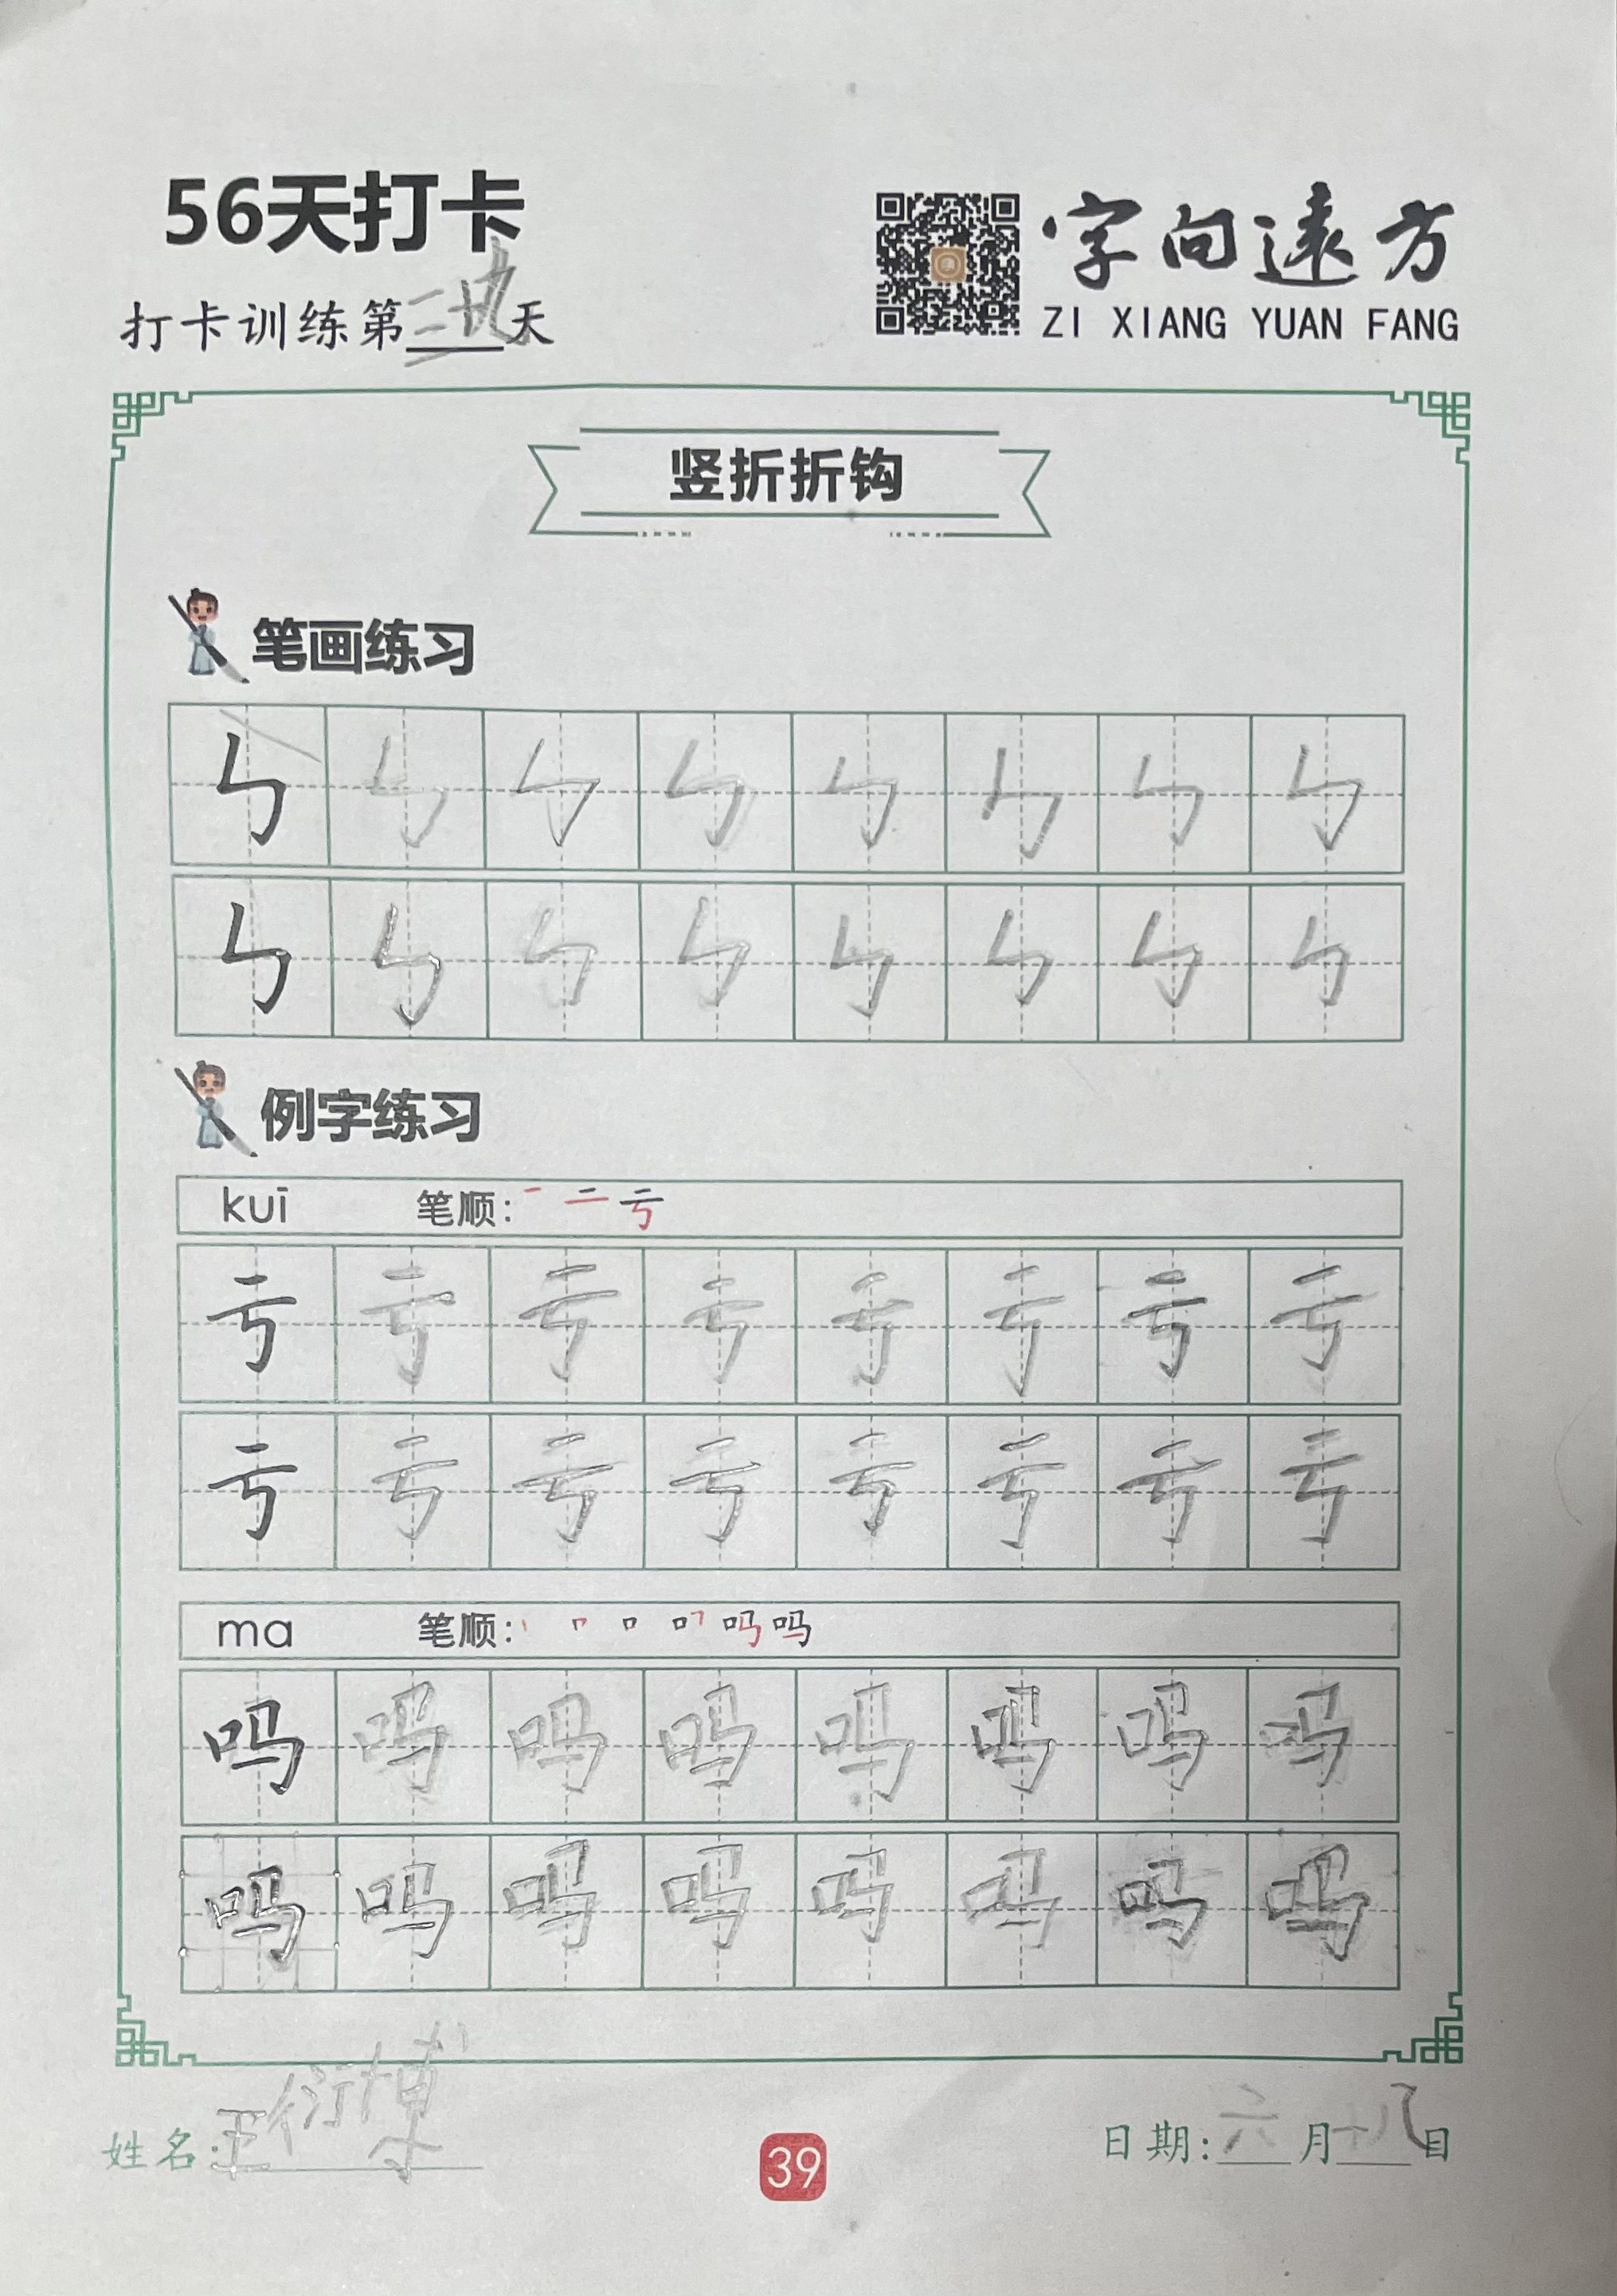 56天打卡
字向遠方
打卡训练第三十九天
ZI XIANG YUAN FANG
竖折折钩
笔画练习
㇉ ㇉ ㇉ ㇉ ㇉ ㇉ ㇉ ㇉
㇉ ㇉ ㇉ ㇉ ㇉ ㇉ ㇉ ㇉
例字练习
kuī 笔顺: 一 二 亏
亏 亏 亏 亏 亏 亏 亏 亏
亏 亏 亏 亏 亏 亏 亏 亏
ma 笔顺:
吗 吗 吗 吗 吗 吗 吗 吗
吗 吗 吗 吗 吗 吗 吗 吗
姓名:王衍博
39
日期:六月十八日